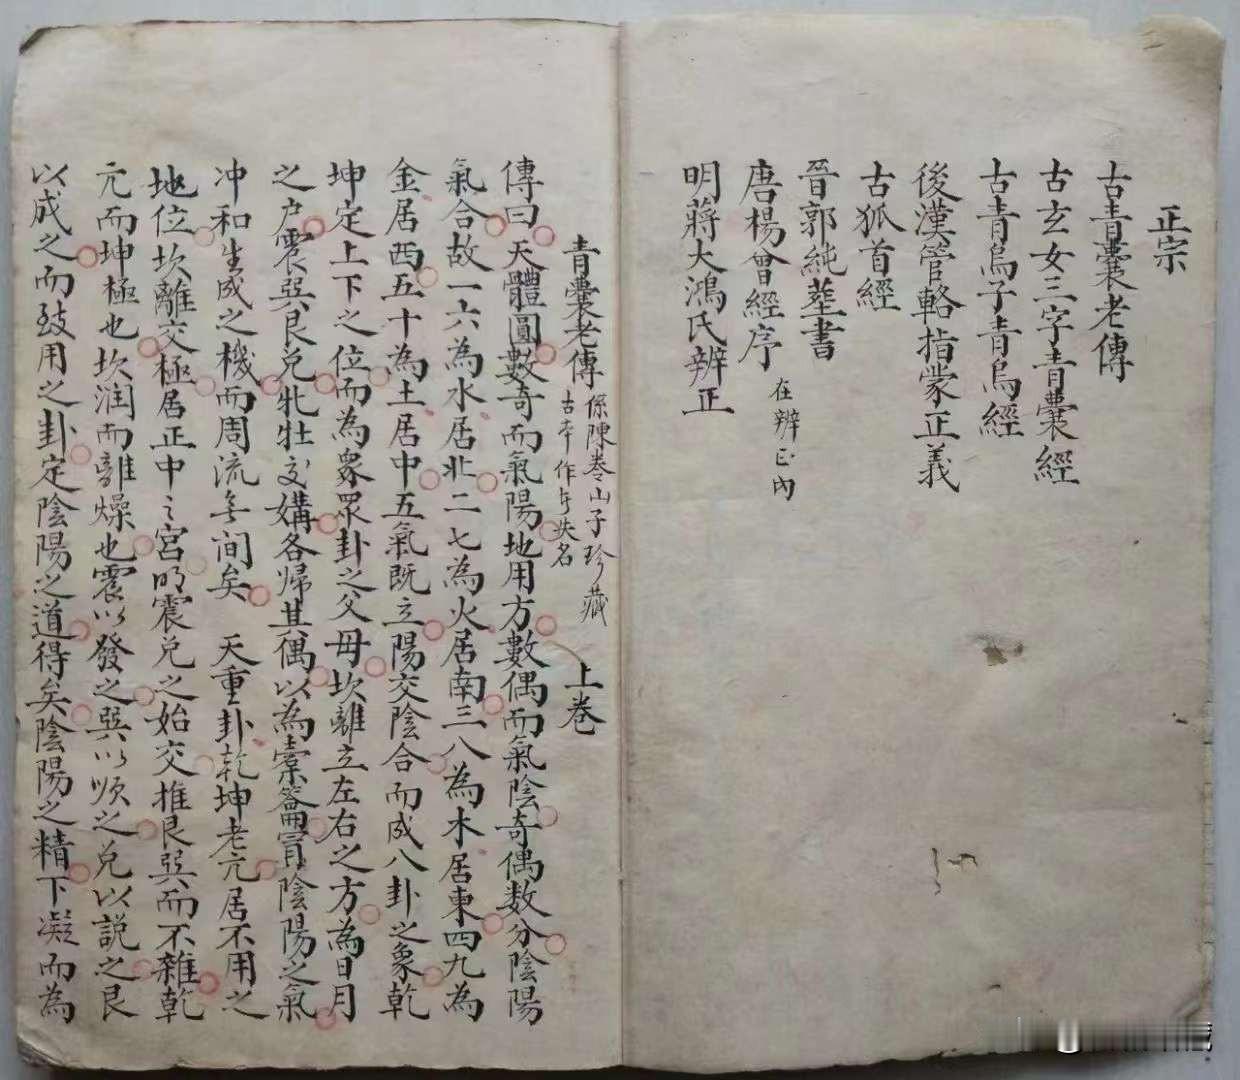 正宗
古青囊老傳
古玄女三字青囊經
古青烏子青烏經
後漢管輅指蒙正義
古狐首經
晉郭純葬書
唐楊曾經序 在辨正內
明蔣大鴻氏辨正
青囊老傳 係陳卷山子珍藏 古本作者失名 上卷
傳曰天體圓數奇而氣陽地用方數偶而氣陰奇偶数分陰陽
氣合故一六為水居北二七為火居南三八為木居東四九為
金居西五十為土居中五氣既立陽交陰合而成八卦之象乾
坤定上下之位而為衆眾卦之父母坎離立左右之方為日月
之户震巽艮兑牝牡交媾各帰其偶以為橐籥買陰陽之氣
冲和生成之機而周流無间矣 天重卦乾坤老亢居不用之
地位坎離交極居正中之宫明震兑之始交推艮巽而不雜乾
亢而坤極也坎潤而離燥也震以發之巽以順之兑以説之艮
以成之而致用之卦定陰陽之道得矣陰陽之精下凝而為